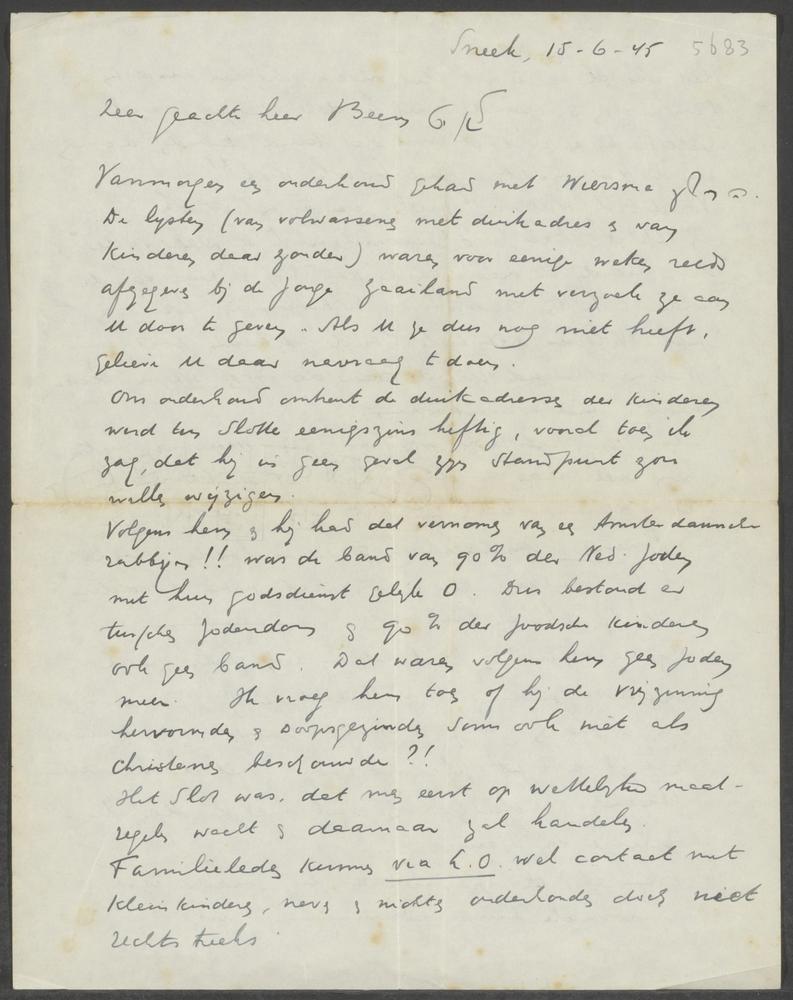 Sneek, 15-6-45 5683
Zeer geachte heer Beem
Vanmorgen een onderhoud gehad met Wiersma
De lysten (van volwassenen met duikadres & van
Kinderen daar zonder) waren voor eenige weken reeds
afgegeven bij de Jonge Zaailand met verzoek ze aan
U door te geven. Als U ze dus nog niet heeft,
gelieve U daar navraag te doen.
Ons onderhoud omtrent de duikadressen der Kinderen
werd ten slotte eenigszins heftig, vooral toen ik
zag, dat hij in geen geval zijn standpunt zou
willen wijzigen.
Volgens hem & hij had dat vernomen van een Amsterdamsche
rabbijn!! was de band van 90% der Ned. Joden
met hun godsdienst gelijk 0. Dus bestond er
tusschen Jodendom & 90% der Joodsche Kinderen
ook geen band. Dat waren volgens hem geen Joden
meer. Ik vroeg hem toen of hij de vrijzinnig
hervormden & Doopsgezinden soms ook niet als
Christenen beschouwde?!
Het slot was, dat men eerst op wettelijke maat-
regels wacht & daarnaar zal handelen.
Familieleden kunnen via L.O. wel contact met
Kleinkinderen, neven & nichten onderhouden doch niet
rechtstreeks.